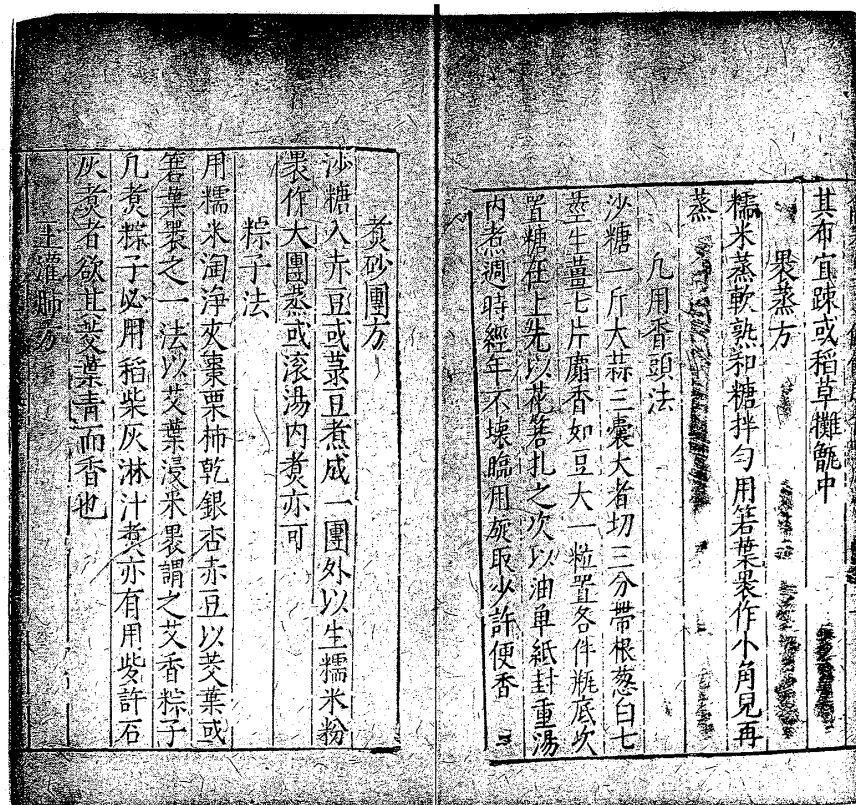 其布宜踈或稻草攤甑中
裹蒸方
糯米蒸軟熟和糖拌勻用箬葉裹作小角兒再
蒸
凢用香頭法
沙糖一斤大蒜三囊大者切三分帶根葱白七
莖生薑七片麝香如豆大一粒置各件瓶底次
置糖在上先以花箬扎之次以油单紙封重湯
内煮週時經年不壞臨用旋取少許便香
煑砂團方
沙糖入赤豆或菉豆煮成一團外以生糯米粉
裹作大團蒸或滚湯内煑亦可
粽子法
用糯米淘淨夾棗栗柿乾銀杏赤豆以茭葉或
箬葉裹之一法以艾葉浸米裹謂之艾香粽子
凢煑粽子必用稻柴灰淋汁煑亦有用些許石
灰煑者欲其茭葉青而香也
玉灌肺方